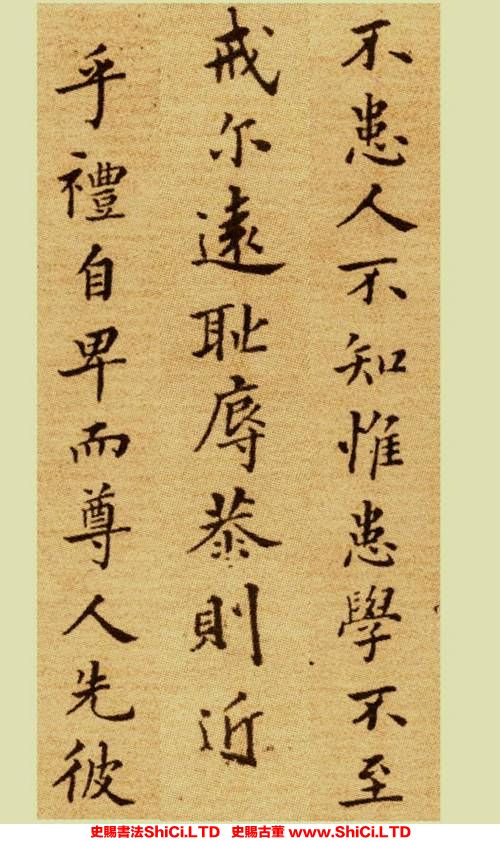 不患人不知惟患學不至
戒尔遠恥辱恭則近
乎禮自卑而尊人先彼
史賜書法ShiCi.LTD 史賜古董 www.ShiCi.LTD